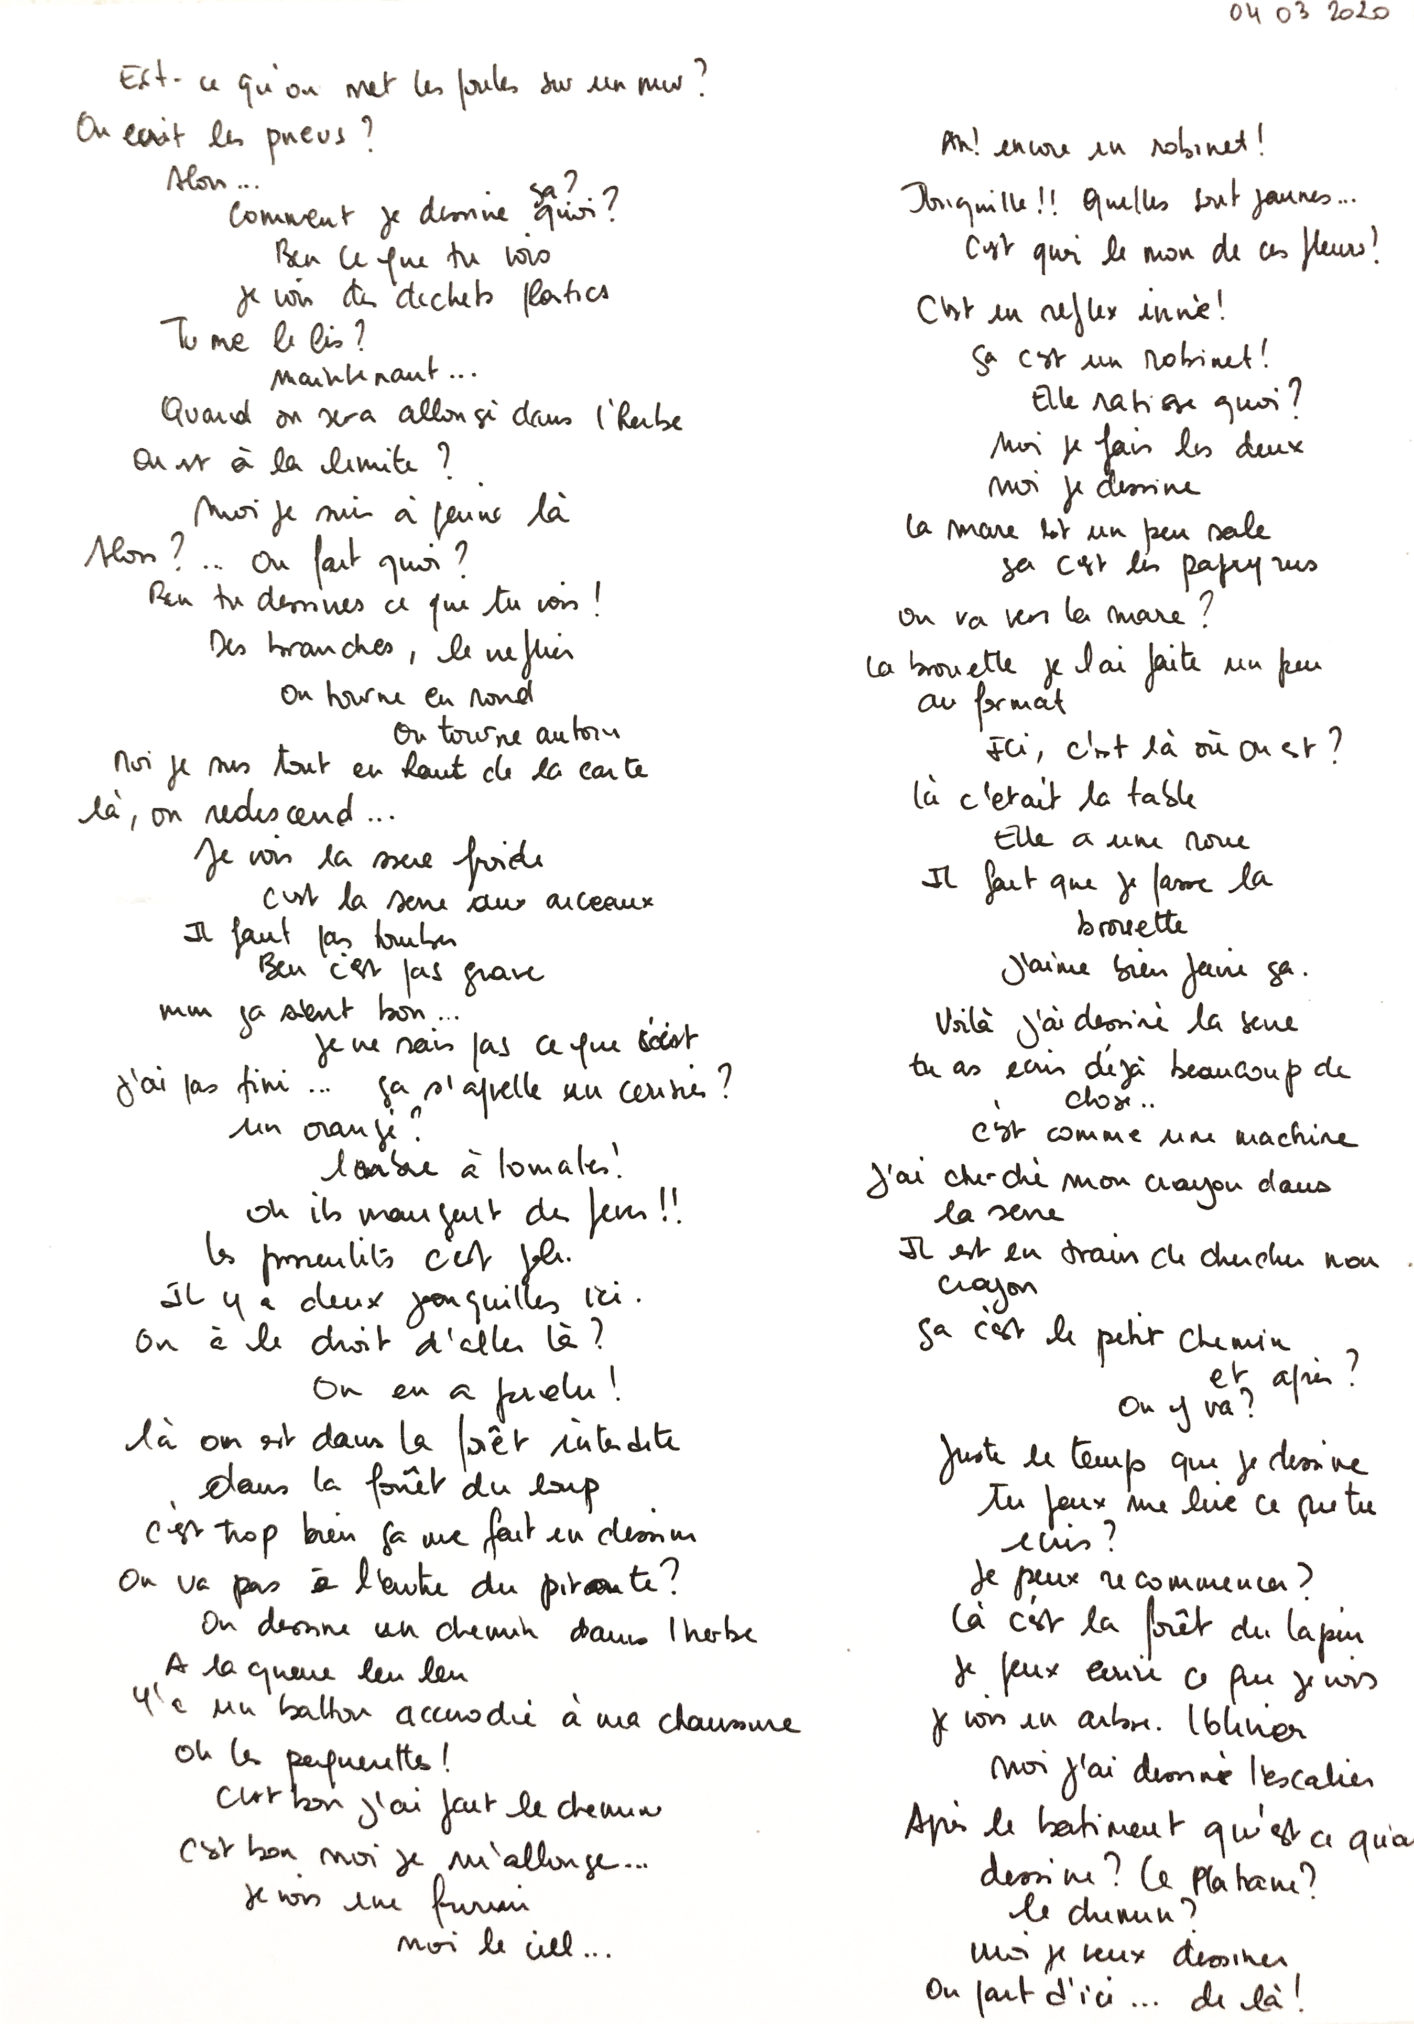 04 03 2020
Est-ce qu'on met les poules sur un mur?
On écrit les pneus?
Alors...
ça?
Comment je dessine quoi?
Ben ce que tu vois
je vois des dechets plastics
Tu me le lis?
maintenant...
Quand on sera allongé dans l'herbe
On est à la limite?
Moi je suis à peine là
Alors?... On fait quoi?
Ben tu dessines ce que tu vois!
Des branches, le neflier
On tourne en rond
On tourne autour
Moi je suis tout en haut de la carte
là, on redescend...
Je vois la serre froide
C'est la serre aux arceaux
Il faut pas tomber
Ben c'est pas grave
mm ça sent bon...
je ne sais pas ce que c'est
J'ai pas fini... ça s'apelle un cerisier?
un orangé?
l'arbre à tomates!
Oh ils mangent des feves!!
les pissenlits c'est joli.
Il y a deux jonquilles ici.
On à le droit d'aller là?
On en a perdu!
là on est dans la forêt interdite
dans la forêt du loup
c'est trop bien ça me fait un dessin
On va pas à l'antre du pirate?
On dessine un chemin dans l'herbe
A la queue leu leu
Y'a un ballon accroché à ma chaussure
Oh les paquerettes!
C'est bon j'ai fait le chemin
C'est bon moi je m'allonge...
je vois une fourmi
moi le ciel...
Ah! encore un robinet!
Jonquille!! Quelles sont jaunes...
C'est quoi le nom de ces fleurs!
C'est un reflex inné!
ça c'est un robinet!
Elle ratisse quoi?
Moi je fais les deux
moi je dessine
la mare est un peu sale
ça c'est les papyrus
on va vers la mare?
la brouette je l'ai faite un peu
au format
Ici, c'est là où on est?
là c'etait la table
Elle a une roue
Il faut que je fasse la
brouette
J'aime bien faire ça.
Voilà j'ai dessiné la serre
tu as ecris déjà beaucoup de
chose..
c'est comme une machine
J'ai cherché mon crayon dans
la serre
Il est en train de chercher mon
crayon
ça c'est le petit chemin
et après?
On y va?
Juste le temps que je dessine
Tu peux me lire ce que tu
ecris?
Je peux recommencer?
Là c'est la forêt du lapin
Je peux ecrire ce que je vois
je vois un arbre.
moi j'ai dessiné l'escalier
Après le batiment qu'est ce qu'on
dessine? Le Platane?
le chemin?
moi je veux dessiner
On part d'ici... de là!